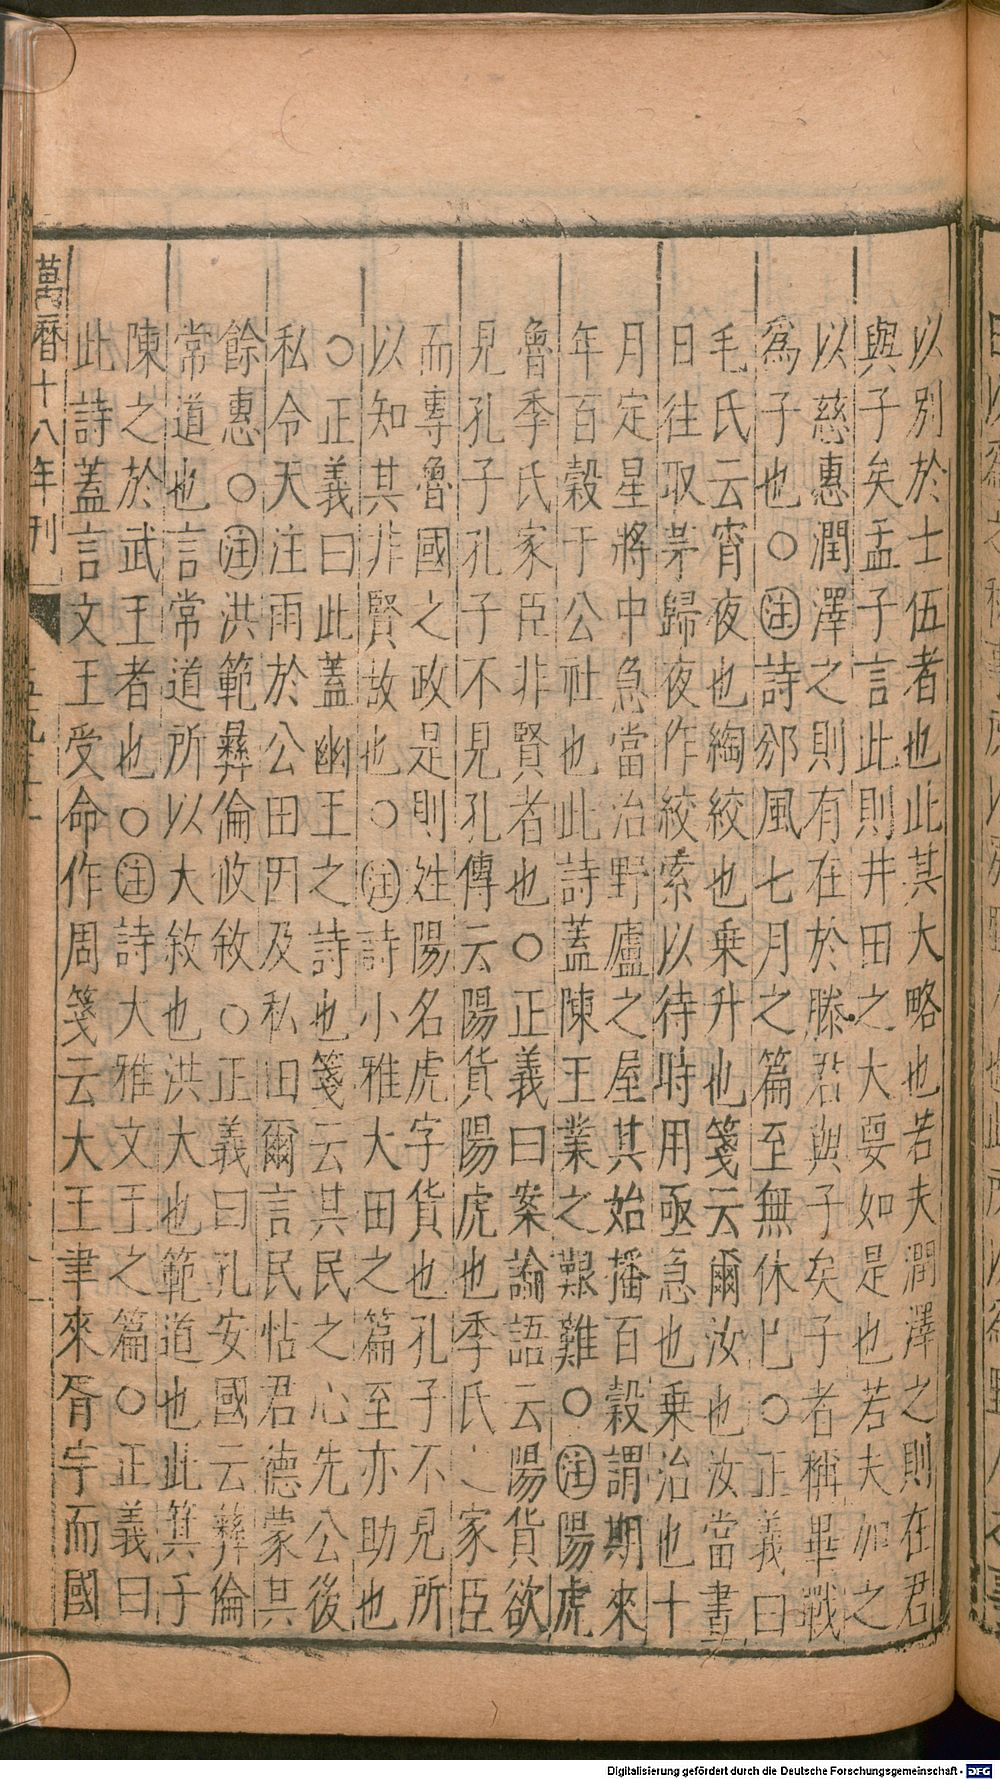 以別於士伍者也此其大略也若夫潤澤之則在君
與子矣孟子言此則井田之大要如是也若夫加之
以慈惠潤澤之則有在於滕君與子矣子者稱畢戰
爲子也○注詩邠風七月之篇至無休已○正義曰
毛氏云宵夜也綯絞也乗升也箋云爾汝也汝當晝
日往取茅歸夜作絞索以待時用亟急也乗治也十
月定星將中急當治野廬之屋其始播百穀謂期來
年百穀于公社也此詩蓋陳王業之艱難○注陽虎
魯季氏家臣非賢者也○正義曰案論語云陽貨欲
見孔子孔子不見孔傳云陽貨陽虎也季氏家臣
而專魯國之政是則姓陽名虎字貨也孔子不見所
以知其非賢故也○注詩小雅大田之篇至亦助也
○正義曰此蓋幽王之詩也箋云其民之心先公後
私令天注雨於公田因及私田爾言民怙君德蒙其
餘惠○注洪範彝倫攸敘○正義曰孔安國云彝倫
常道也言常道所以大敘也洪大也範道也此箕子
陳之於武王者也○注詩大雅文王之篇○正義曰
此詩蓋言文王受命作周箋云大王聿來胥宇而國
萬曆十八年刊
Digitalisierung gefördert durch die Deutsche Forschungsgemeinschaft - DFG